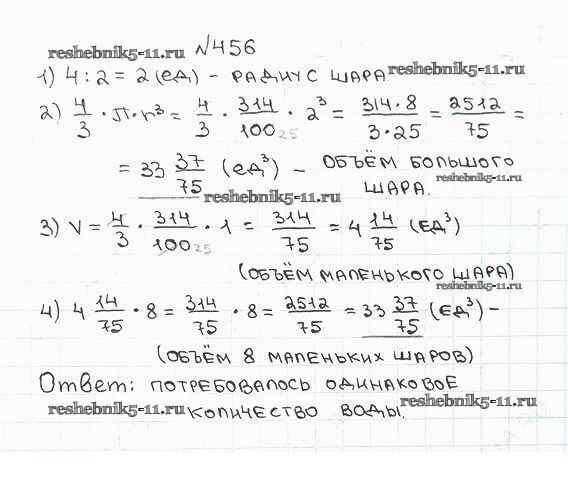 reshebnik5-11.ru №456
1) 4 : 2 = 2 (ед) - радиус шара reshebnik5-11.ru
2) 4/3 · π · r³ = 4/3 · 314/100 25 · 2³ = 314·8/3·25 = 2512/75 =
= 33 37/75 (ед³) - объём большого
шара. reshebnik5-11.ru
reshebnik5-11.ru
3) V = 4/3 · 314/100 25 · 1 = 314/75 = 4 14/75 (ед³)
(объём маленького шара)
reshebnik5-11.ru
4) 4 14/75 · 8 = 314/75 · 8 = 2512/75 = 33 37/75 (ед³) -
(объём 8 маленьких шаров)
Ответ: потребовалось одинаковое
reshebnik5-11.ru количество воды. reshebnik5-11.ru